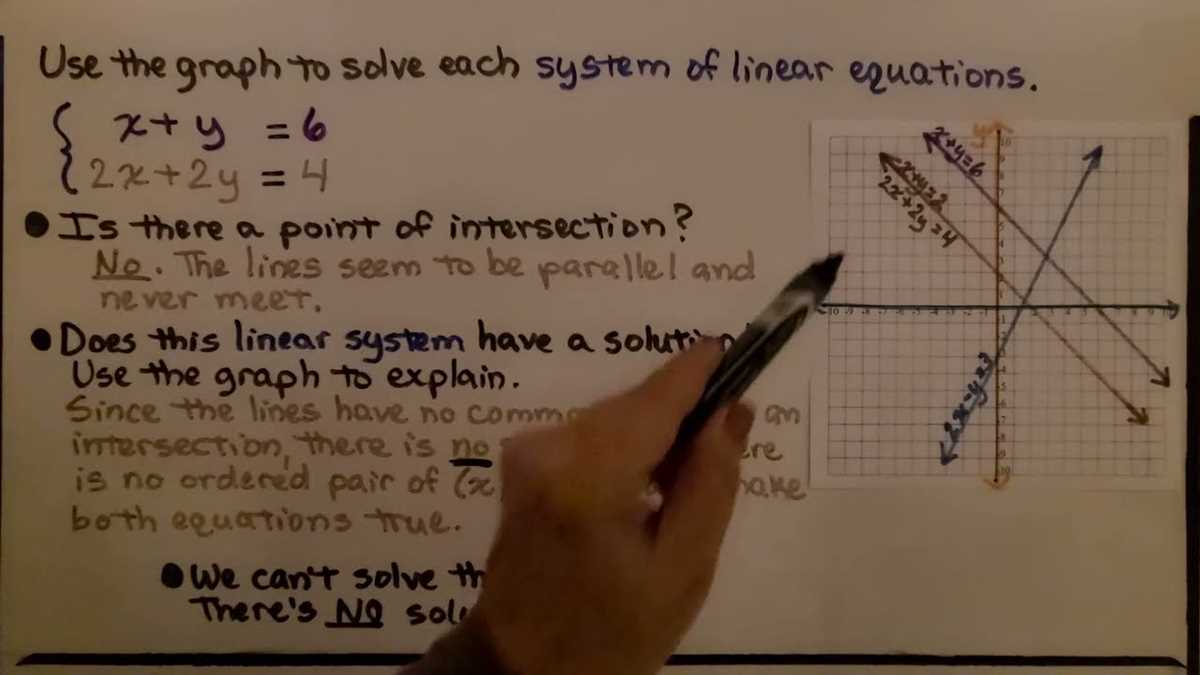 Use the graph to solve each system of linear equations.
x + y = 6
2x + 2y = 4
Is there a point of intersection?
No. The lines seem to be parallel and
never meet.
Does this linear system have a solution
Use the graph to explain.
Since the lines have no an
intersection, there is no
is no ordered pair of (x
both equations true.
We can't solve
There's NO
y
x+y=6
x+y=2
2x+2y=4